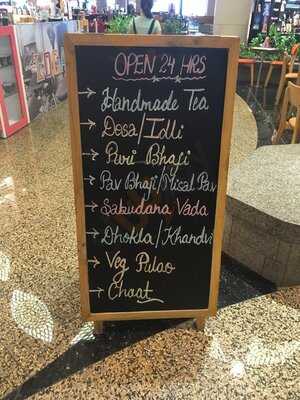 OPEN 24 HRS
→ Handmade Tea
→ Dosa/Idli
→ Puri Bhaji
→ Pav Bhaji/Misal Pav
→ Sabudana Vada
→ Dhokla/Khandvi
→ Veg Pulao
→ Chaat